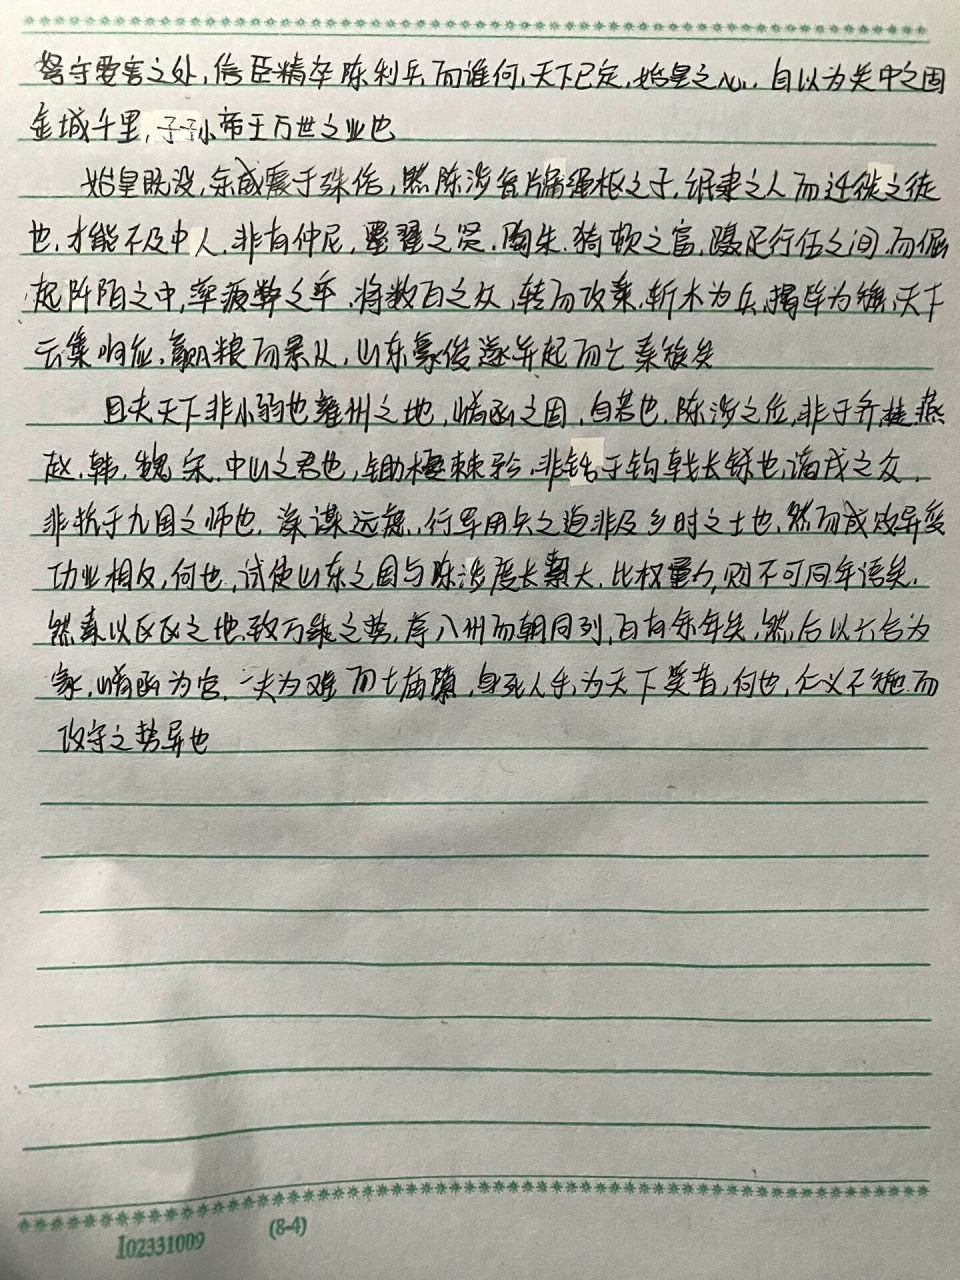 弩守要害之处,信臣精卒陈利兵而谁何,天下已定,始皇之心,自以为关中之固
金城千里,子孙帝王万世之业也
始皇既没,余威震于殊俗,然陈涉瓮牖绳枢之子,氓隶之人而迁徙之徒
也,才能不及中人,非有仲尼,墨翟之贤,陶朱,猗顿之富,蹑足行伍之间而倔
起阡陌之中,率疲弊之卒,将数百之众,转而攻秦,斩木为兵,揭竿为旗,天下
云集响应,赢粮而景从,山东豪俊遂并起而亡秦族矣
且夫天下非小弱也雍州之地,崤函之固,自若也,陈涉之位,非于齐,楚,燕
赵,韩,魏宋,中山之君也,锄櫌棘矜,非铦于钩戟长铩也,谪戍之众,
非抗于九国之师也,深谋远虑,行军用兵之道非及乡时之士也,然而成败异变
功业相反,何也,试使山东之国与陈涉度长絜大,比权量力,则不可同年语矣,
然秦以区区之地,致万乘之势,序八州而朝同列,百有余年矣,然后以六合为
家,崤函为宫,一夫为难而七庙隳,身死人手,为天下笑者,何也,仁义不施而
攻守之势异也
102331009 (8-4)